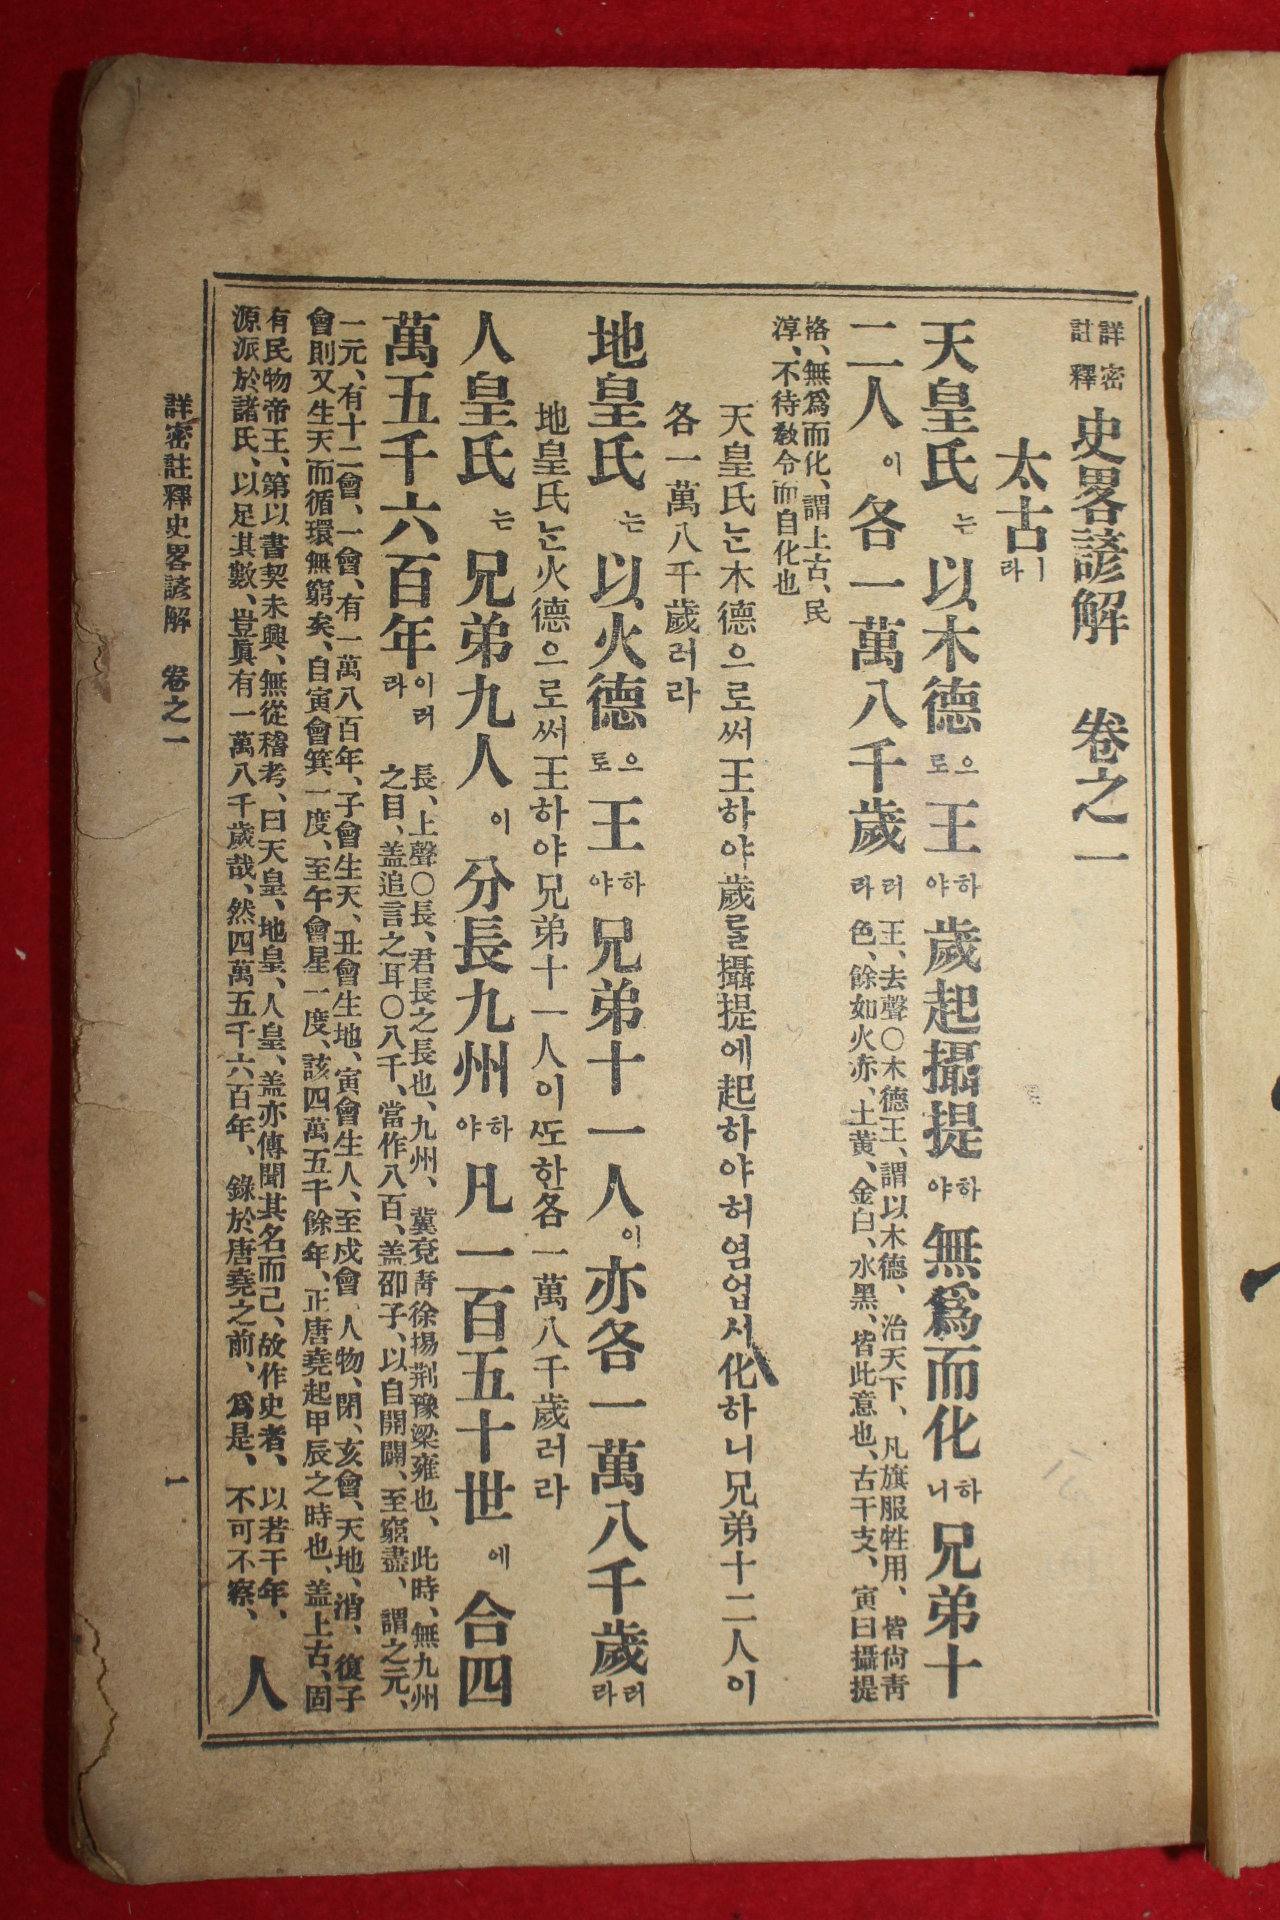 詳密註釋 史畧諺解 卷之一
太古ㅣ라
天皇氏는 以木德으로 王하야 歲起攝提하야 無爲而化하니 兄弟十
二人이 各一萬八千歲러라 王、去聲○木德王、謂以木德、治天下、凡旗服牲用、皆尙靑
色、餘如火赤、土黃、金白、水黑、皆此意也、古干支、寅曰攝提
格、無爲而化、謂上古、民
淳、不待敎令而自化也
天皇氏는木德으로써王하야歲를攝提에起하야허염업서化하니兄弟十二人이
各一萬八千歲러라
地皇氏는 以火德으로 王하야 兄弟十一人이 亦各一萬八千歲러라
地皇氏는火德으로써王하야兄弟十一人이ᄯᅩ한各一萬八千歲러라
人皇氏는 兄弟九人이 分長九州하야 凡一百五十世에 合四
萬五千六百年이러라 長、上聲○長、君長之長也、九州、冀兗靑徐揚荊豫梁雍也、此時、無九州
之目、盖追言之耳○八千、當作八百、盖卲子、以自開闢、至窮盡、謂之元、
一元、有十二會、一會、有一萬八百年、子會生天、丑會生地、寅會生人、至戌會、人物、閉、亥會、天地、消、復子
會則又生天而循環無窮矣、自寅會箕一度、至午會星一度、該四萬五千餘年、正唐堯起甲辰之時也、盖上古、固
有民物帝王、第以書契未興、無從稽考、曰天皇、地皇、人皇、盖亦傳聞其名而已、故作史者、以若干年、
源派於諸氏、以足其數、豈眞有一萬八千歲哉、然四萬五千六百年、錄於唐堯之前、爲是、不可不察、 人
詳密註釋史畧諺解 卷之一 一